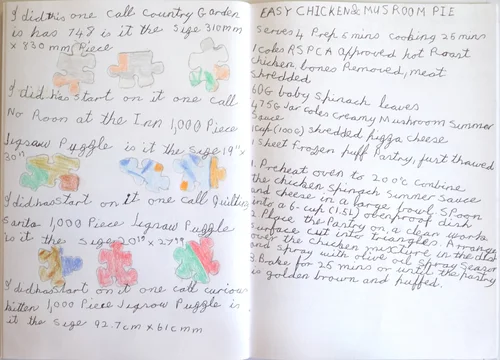 I did this one call Country Garden
is has 748 is it the size 310mm
x 830mm Piece
I did has start on it one call
No Roon at the Inn 1,000 Piece
Jigsaw Puzzle is it the size 19"x
30"
I did has start on it one call Quilting
Santa 1,000 Piece Jigsaw Puzzle
is it the size 20" x 27"
I did has start on it one call curious
kitten 1,000 Piece Jigsaw Puzzle is
it the size 92.7cm x 61cmm
EASY CHICKEN & MUSROOM PIE
Serves 4 Pref 5 mins cooking 25 mins
1 coles RSPCA approved hot Roast
chicken, bones Removed, meat
shredded
60G baby Spinach leaves
475G Jar coles creamy Mushroom Summer
Sauce
1cup (100G) shredded pizza cheese
1 sheet frozen puff Pastry, just thawed
1. Preheat oven to 200°c combine
the chicken Spinach Summer sauce
and cheese in a large bowl. Spoon
into a 6-cup (1.5L) ovenproof dish
2 Place the Pastry on, a clean work
surface cut into triangles. Arrange
over the chicken micture in the dish
and spray with olive oil Spray Season
3. Bake for 25 mins or until the pastry
is golden brown and puffed.